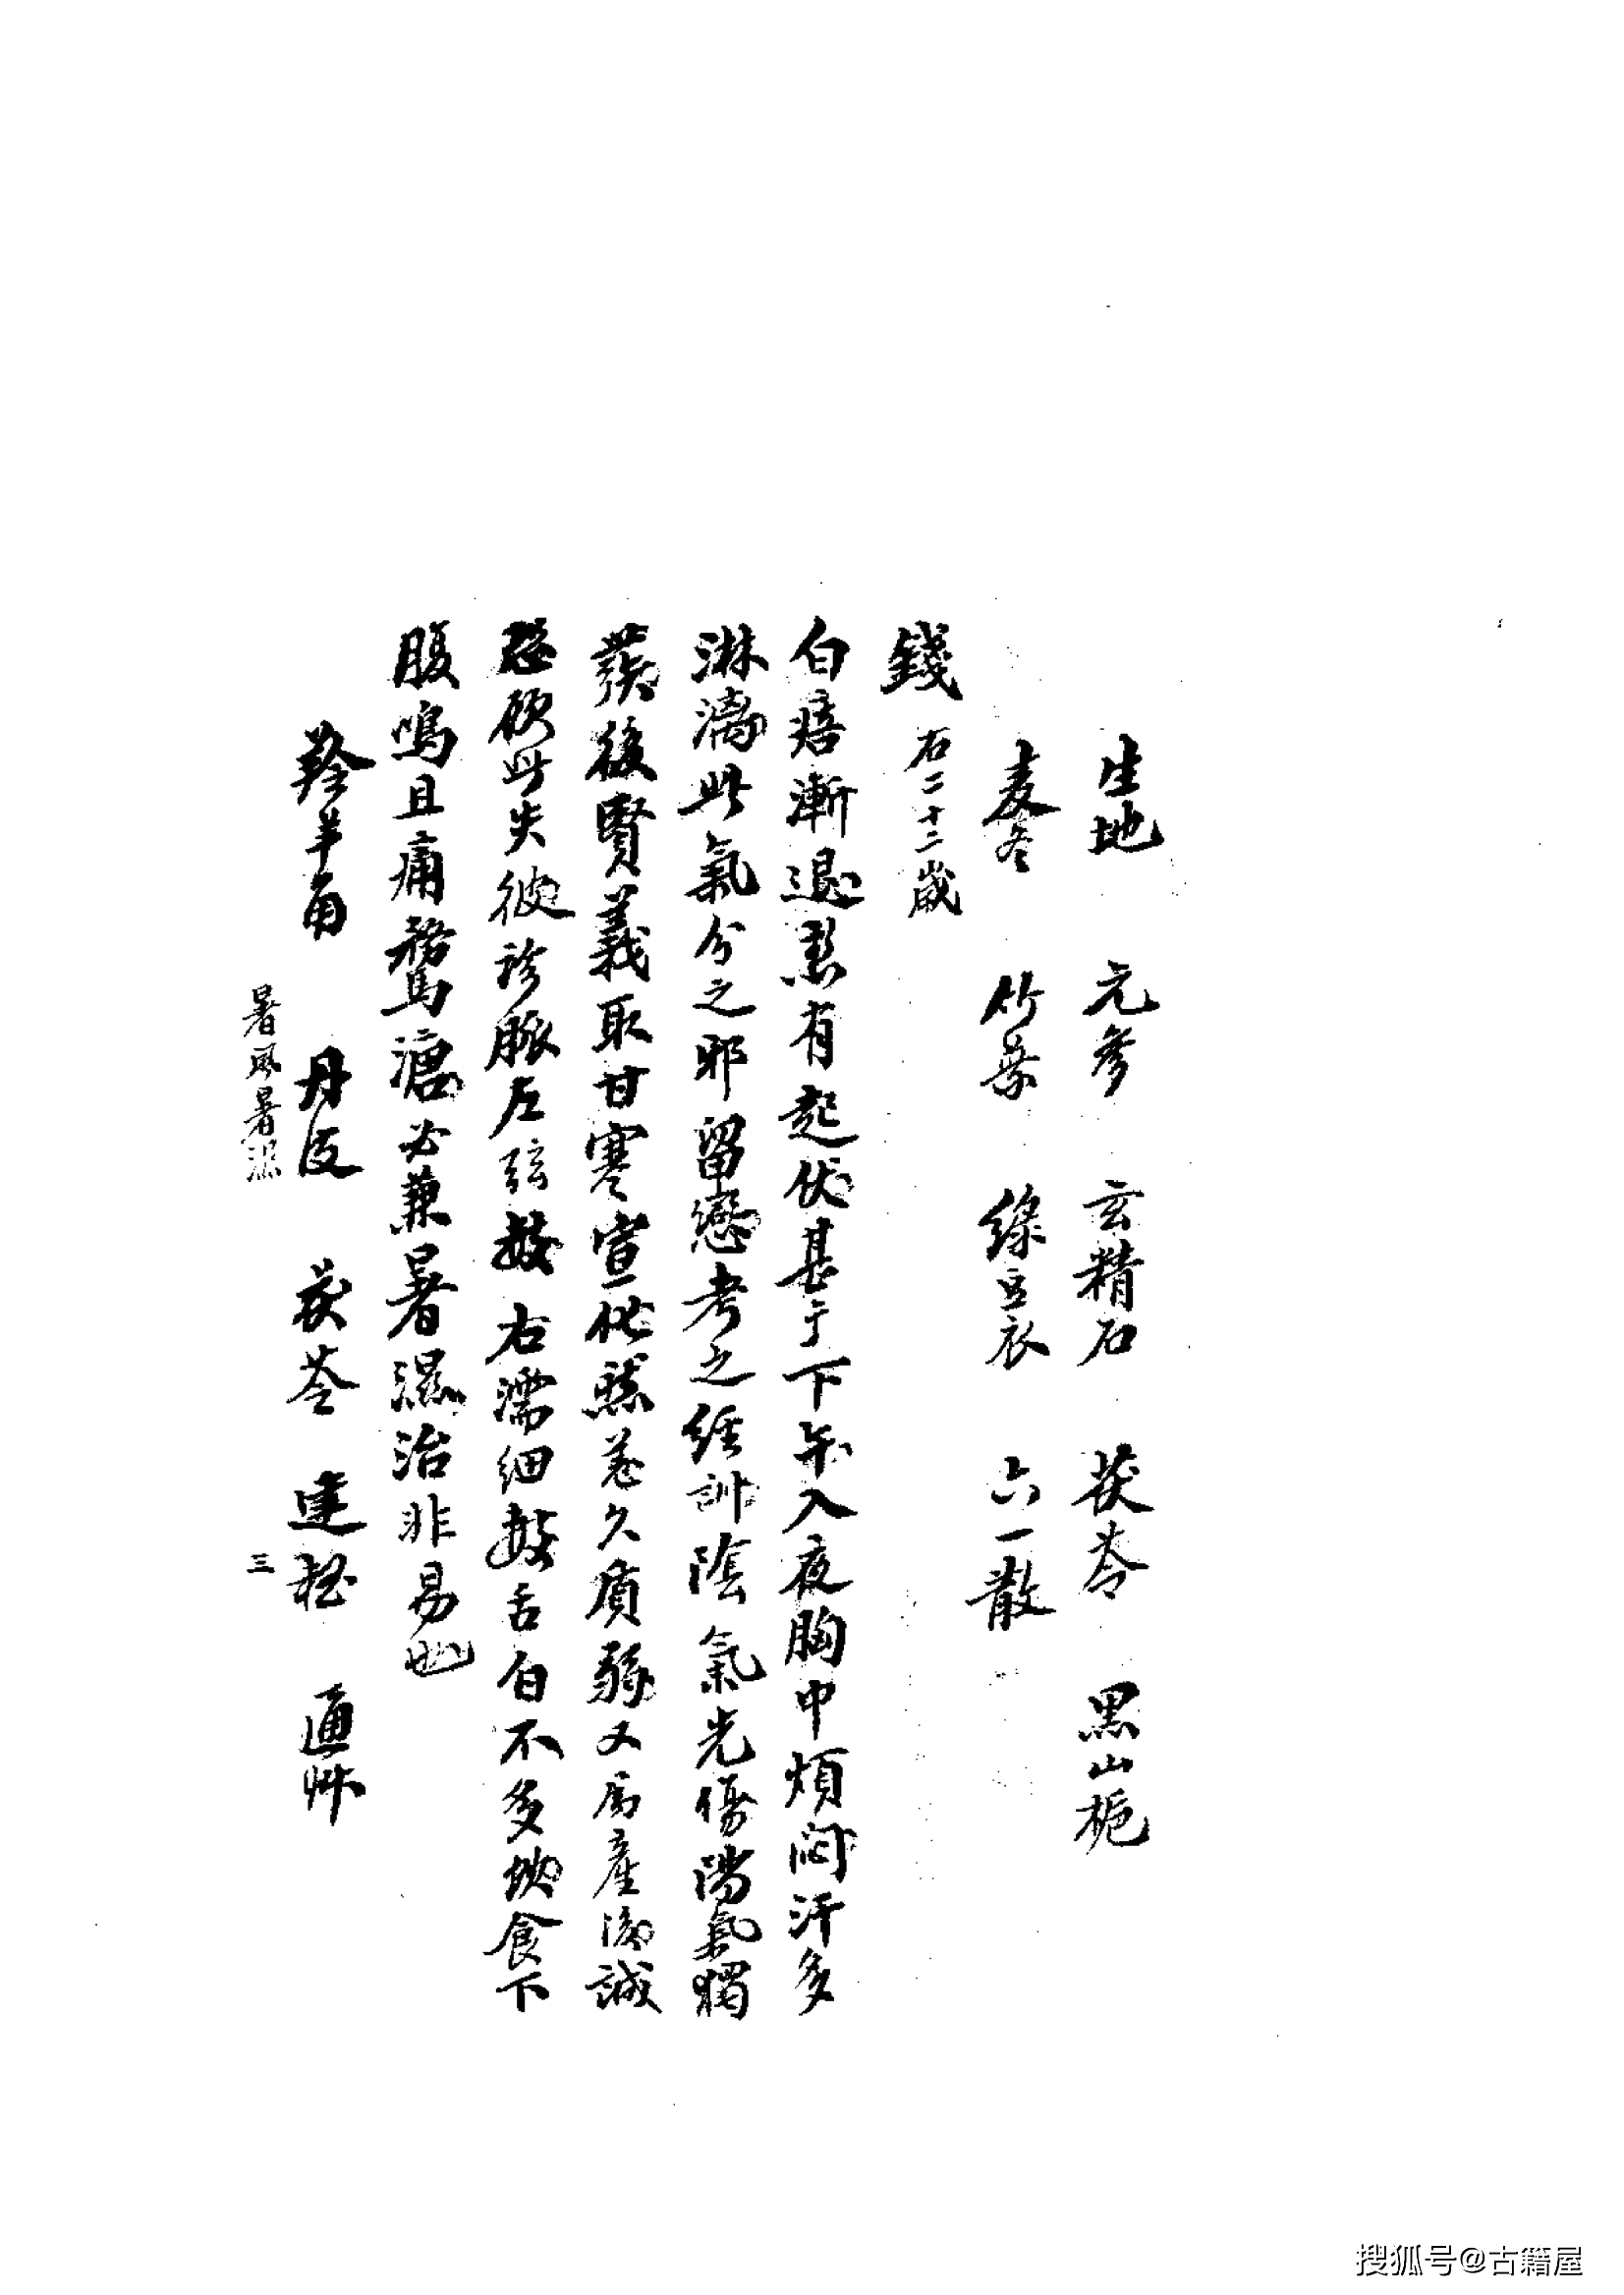 生地　元參　玄精石　茯苓　黑山梔
麦冬　竹葉　綠豆衣　六一散
錢　右二十二歲
白㾦漸退熱有起伏甚于下午入夜胸中煩悶汗多
淋漓此氣分之邪留戀考之經訓陰氣先傷陽氣獨
發後賢義取甘寒宣化然恙久質弱又屬產後誠
恐顧此失彼診脈左弦數右濡細數舌白不多飲食下
腹鳴且痛鶩溏必兼暑濕治非易也
羚羊角　丹皮　茯苓　連翹　通艸
暑風暑濕
三
搜狐号@古籍屋